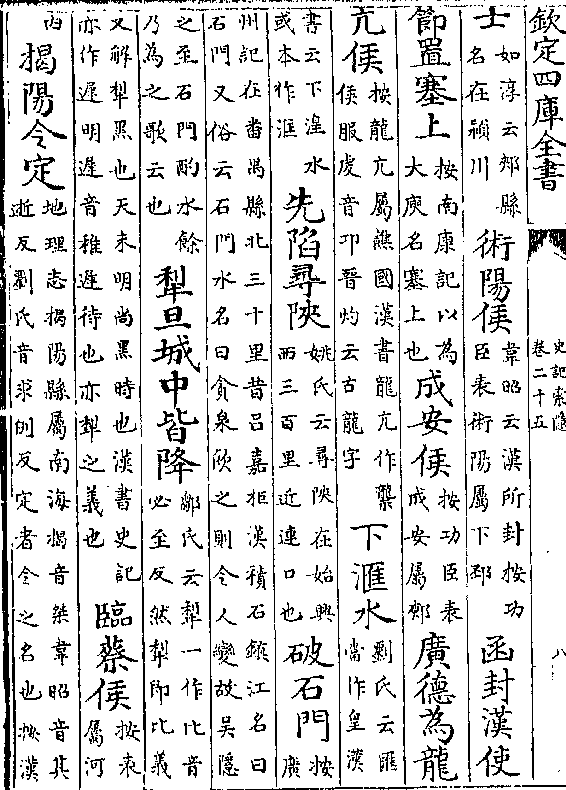 欽定四庫全書
史記索隱
卷二十五
八
士如淳云郟縣名在潁川術陽侯韋昭云漢所封按功臣表術陽屬下邳函封漢使
節置塞上按南康記以為大庾名塞上也成安侯按功臣表成安屬郟廣德為龍
亢侯按龍亢屬譙國漢書龍亢作龒侯服虔音卭晉灼云古龍字下滙水劉氏云匯當作皇漢
書云下湟水或本作滙先陷尋陝姚氏云尋陝在始興西三百里近連口也破石門按廣
州記在番禺縣北三十里昔吕嘉拒漢積石鎮江名曰石門又俗云石門水名曰貪泉飲之則令人變故吳隱
之至石門酌水餘乃為之歌云也犂旦城中皆降鄒氏云犂一作比音必至反然犂即比義
又解犂黑也天未明尚黑時也漢書史記亦作遲明遲音稚遲待也亦犂之義也臨蔡侯按表屬河
内揭陽令定地理志揭陽縣屬南海揭音桀韋昭音其逝反劉氏音求例反定者令之名也按漢